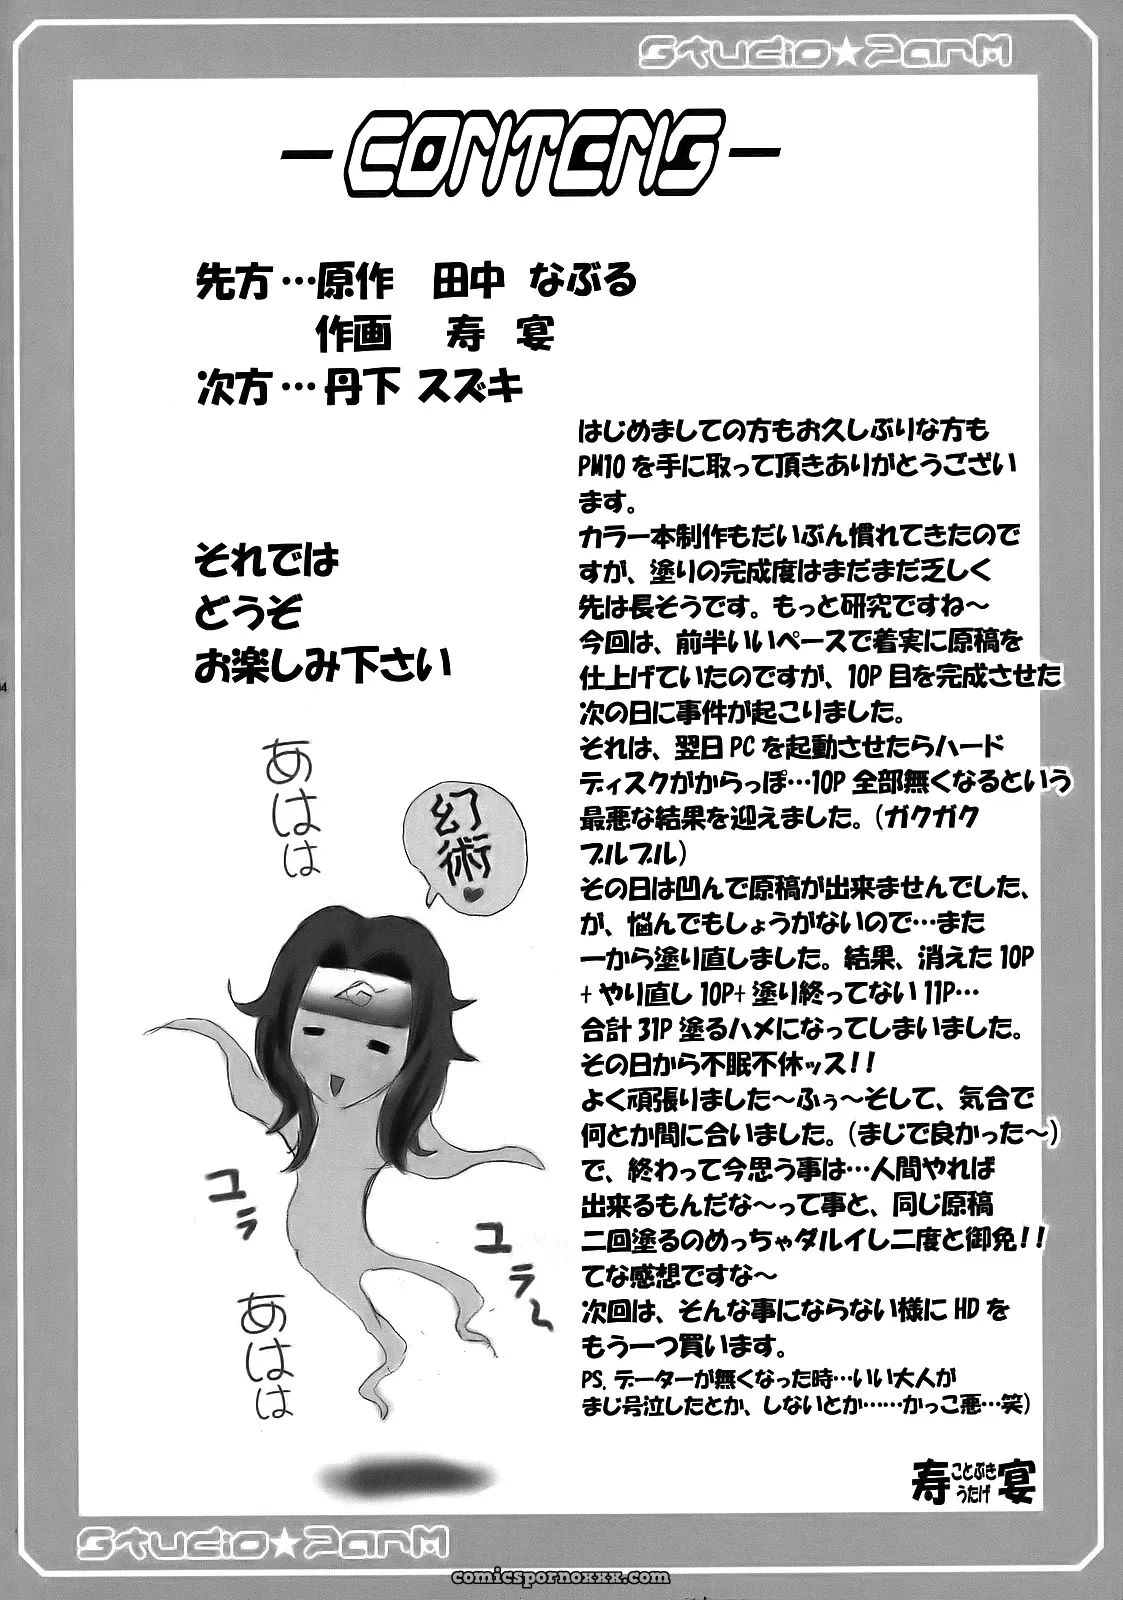 Studio★ParM
-CONTENS-
先方…原作 田中 なぶる
作画 寿 宴
次方…丹下 スズキ
はじめましての方もお久しぶりな方も
PM10を手に取って頂きありがとうござい
ます。
カラー本制作もだいぶん慣れてきたので
すが、塗りの完成度はまだまだ乏しく
先は長そうです。もっと研究ですね～
今回は、前半いいペースで着実に原稿を
仕上げていたのですが、10P目を完成させた
次の日に事件が起こりました。
それは、翌日PCを起動させたらハード
ディスクがからっぽ…10P全部無くなるという
最悪な結果を迎えました。(ガクガク
ブルブル)
その日は凹んで原稿が出来ませんでした、
が、悩んでもしょうがないので…また
一から塗り直しました。結果、消えた10P
+やり直し10P+塗り終ってない11P…
合計31P塗るハメになってしまいました。
その日から不眠不休ッス!!
よく頑張りました～ふぅ～そして、気合で
何とか間に合いました。(まじで良かった～)
で、終わって今思う事は…人間やれば
出来るもんだな～って事と、同じ原稿
二回塗るのめっちゃダルイし二度と御免!!
てな感想ですな～
次回は、そんな事にならない様にHDを
もう一つ買います。
PS.データーが無くなった時…いい大人が
まじ号泣したとか、しないとか……かっこ悪…笑)
寿 ことぶき うたげ 宴
それでは
どうぞ
お楽しみ下さい
あはは
幻術♥
ユラ
ユラ～
あはは
04
Studio★ParM
comicspornoxxx.com